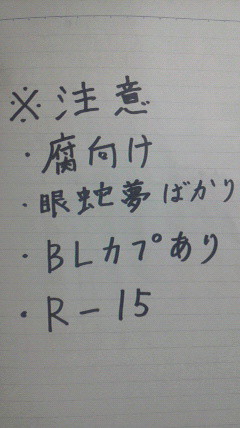 ※注意
・腐向け
・眼蛇夢ばかり
・BLカプあり
・R-15